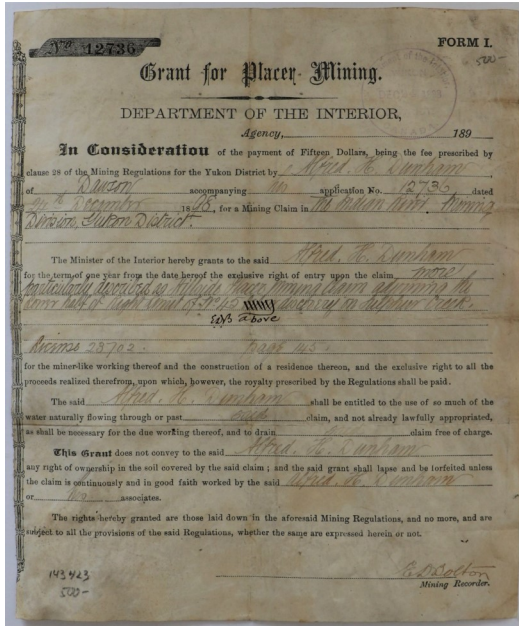 No 12736
FORM I.
500-
Grant for Placer Mining.
DEPARTMENT OF THE INTERIOR,
Agency, 189
In Consideration of the payment of Fifteen Dollars, being the fee prescribed by
clause 29 of the Mining Regulations for the Yukon District by Alfred. H. Dunham
of Dawson accompanying his application No. 12736 dated
24th December 1898, for a Mining Claim in the Indian River Mining
Division, Yukon District.
The Minister of the Interior hereby grants to the said Alfred. H. Dunham
for the term of one year from the date hereof the exclusive right of entry upon the claim more
particularly described as Hillside placer mining claim adjoining the
lower half of Right limit of No 42 discovery on Sulphur Creek
EDB above
28702 145
for the miner-like working thereof and the construction of a residence thereon, and the exclusive right to all the
proceeds realized therefrom, upon which, however, the royalty prescribed by the Regulations shall be paid.
The said Alfred. H. Dunham shall be entitled to the use of so much of the
water naturally flowing through or past claim, and not already lawfully appropriated,
as shall be necessary for the due working thereof, and to drain claim free of charge.
This Grant does not convey to the said Alfred. H. Dunham
any right of ownership in the soil covered by the said claim; and the said grant shall lapse and be forfeited unless
the claim is continuously and in good faith worked by the said Alfred. H. Dunham
or his associates.
The rights hereby granted are those laid down in the aforesaid Mining Regulations, and no more, and are
subject to all the provisions of the said Regulations, whether the same are expressed herein or not.
143423
500-
E D Bolton
Mining Recorder.